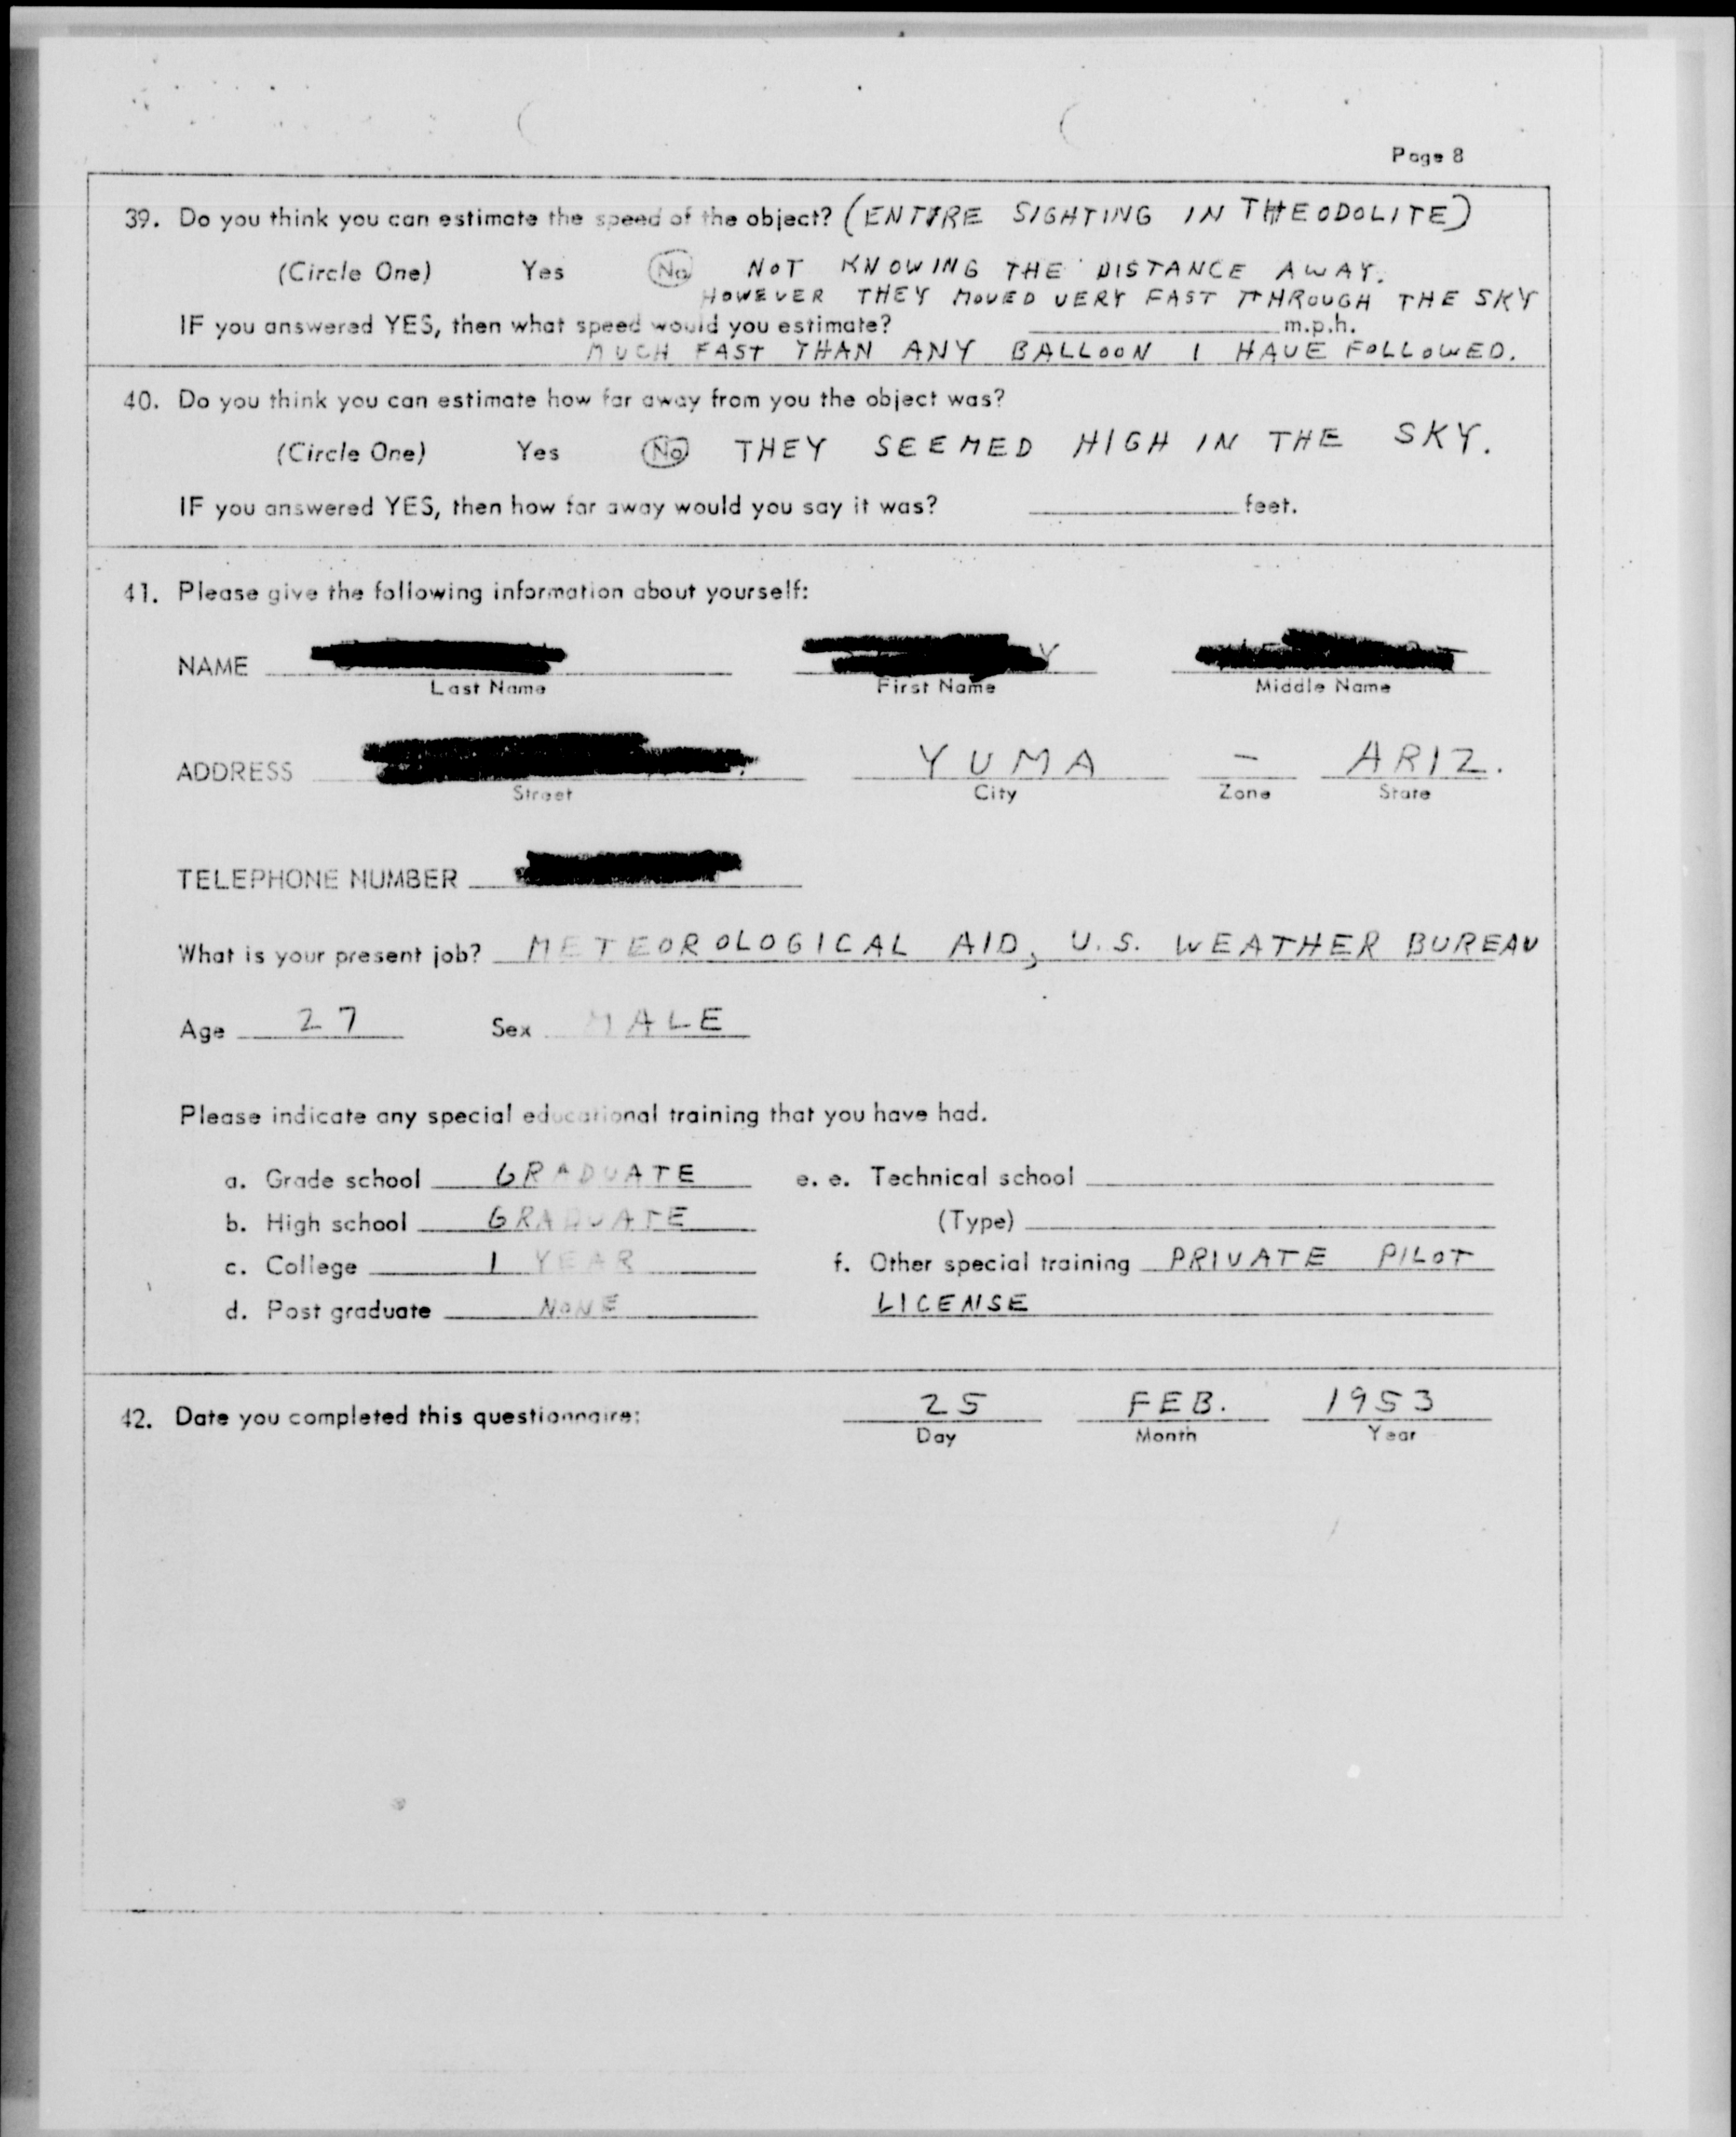 Page 8
39. Do you think you can estimate the speed of the object? (ENTIRE SIGHTING IN THEODOLITE)
(Circle One) Yes No NOT KNOWING THE DISTANCE AWAY.
HOWEVER THEY MOVED VERY FAST THROUGH THE SKY
IF you answered YES, then what speed would you estimate? m.p.h.
MUCH FAST THAN ANY BALLOON I HAVE FOLLOWED.
40. Do you think you can estimate how far away from you the object was?
(Circle One) Yes No THEY SEEMED HIGH IN THE SKY.
IF you answered YES, then how far away would you say it was? feet.
41. Please give the following information about yourself:
NAME
Last Name First Name Middle Name
ADDRESS YUMA - ARIZ.
Street City Zone State
TELEPHONE NUMBER
What is your present job? METEOROLOGICAL AID, U.S. WEATHER BUREAU
Age 27 Sex MALE
Please indicate any special educational training that you have had.
a. Grade school GRADUATE e. e. Technical school
b. High school GRADUATE (Type)
c. College 1 YEAR f. Other special training PRIVATE PILOT
d. Post graduate NONE LICENSE
42. Date you completed this questionnaire: 25 FEB. 1953
Day Month Year